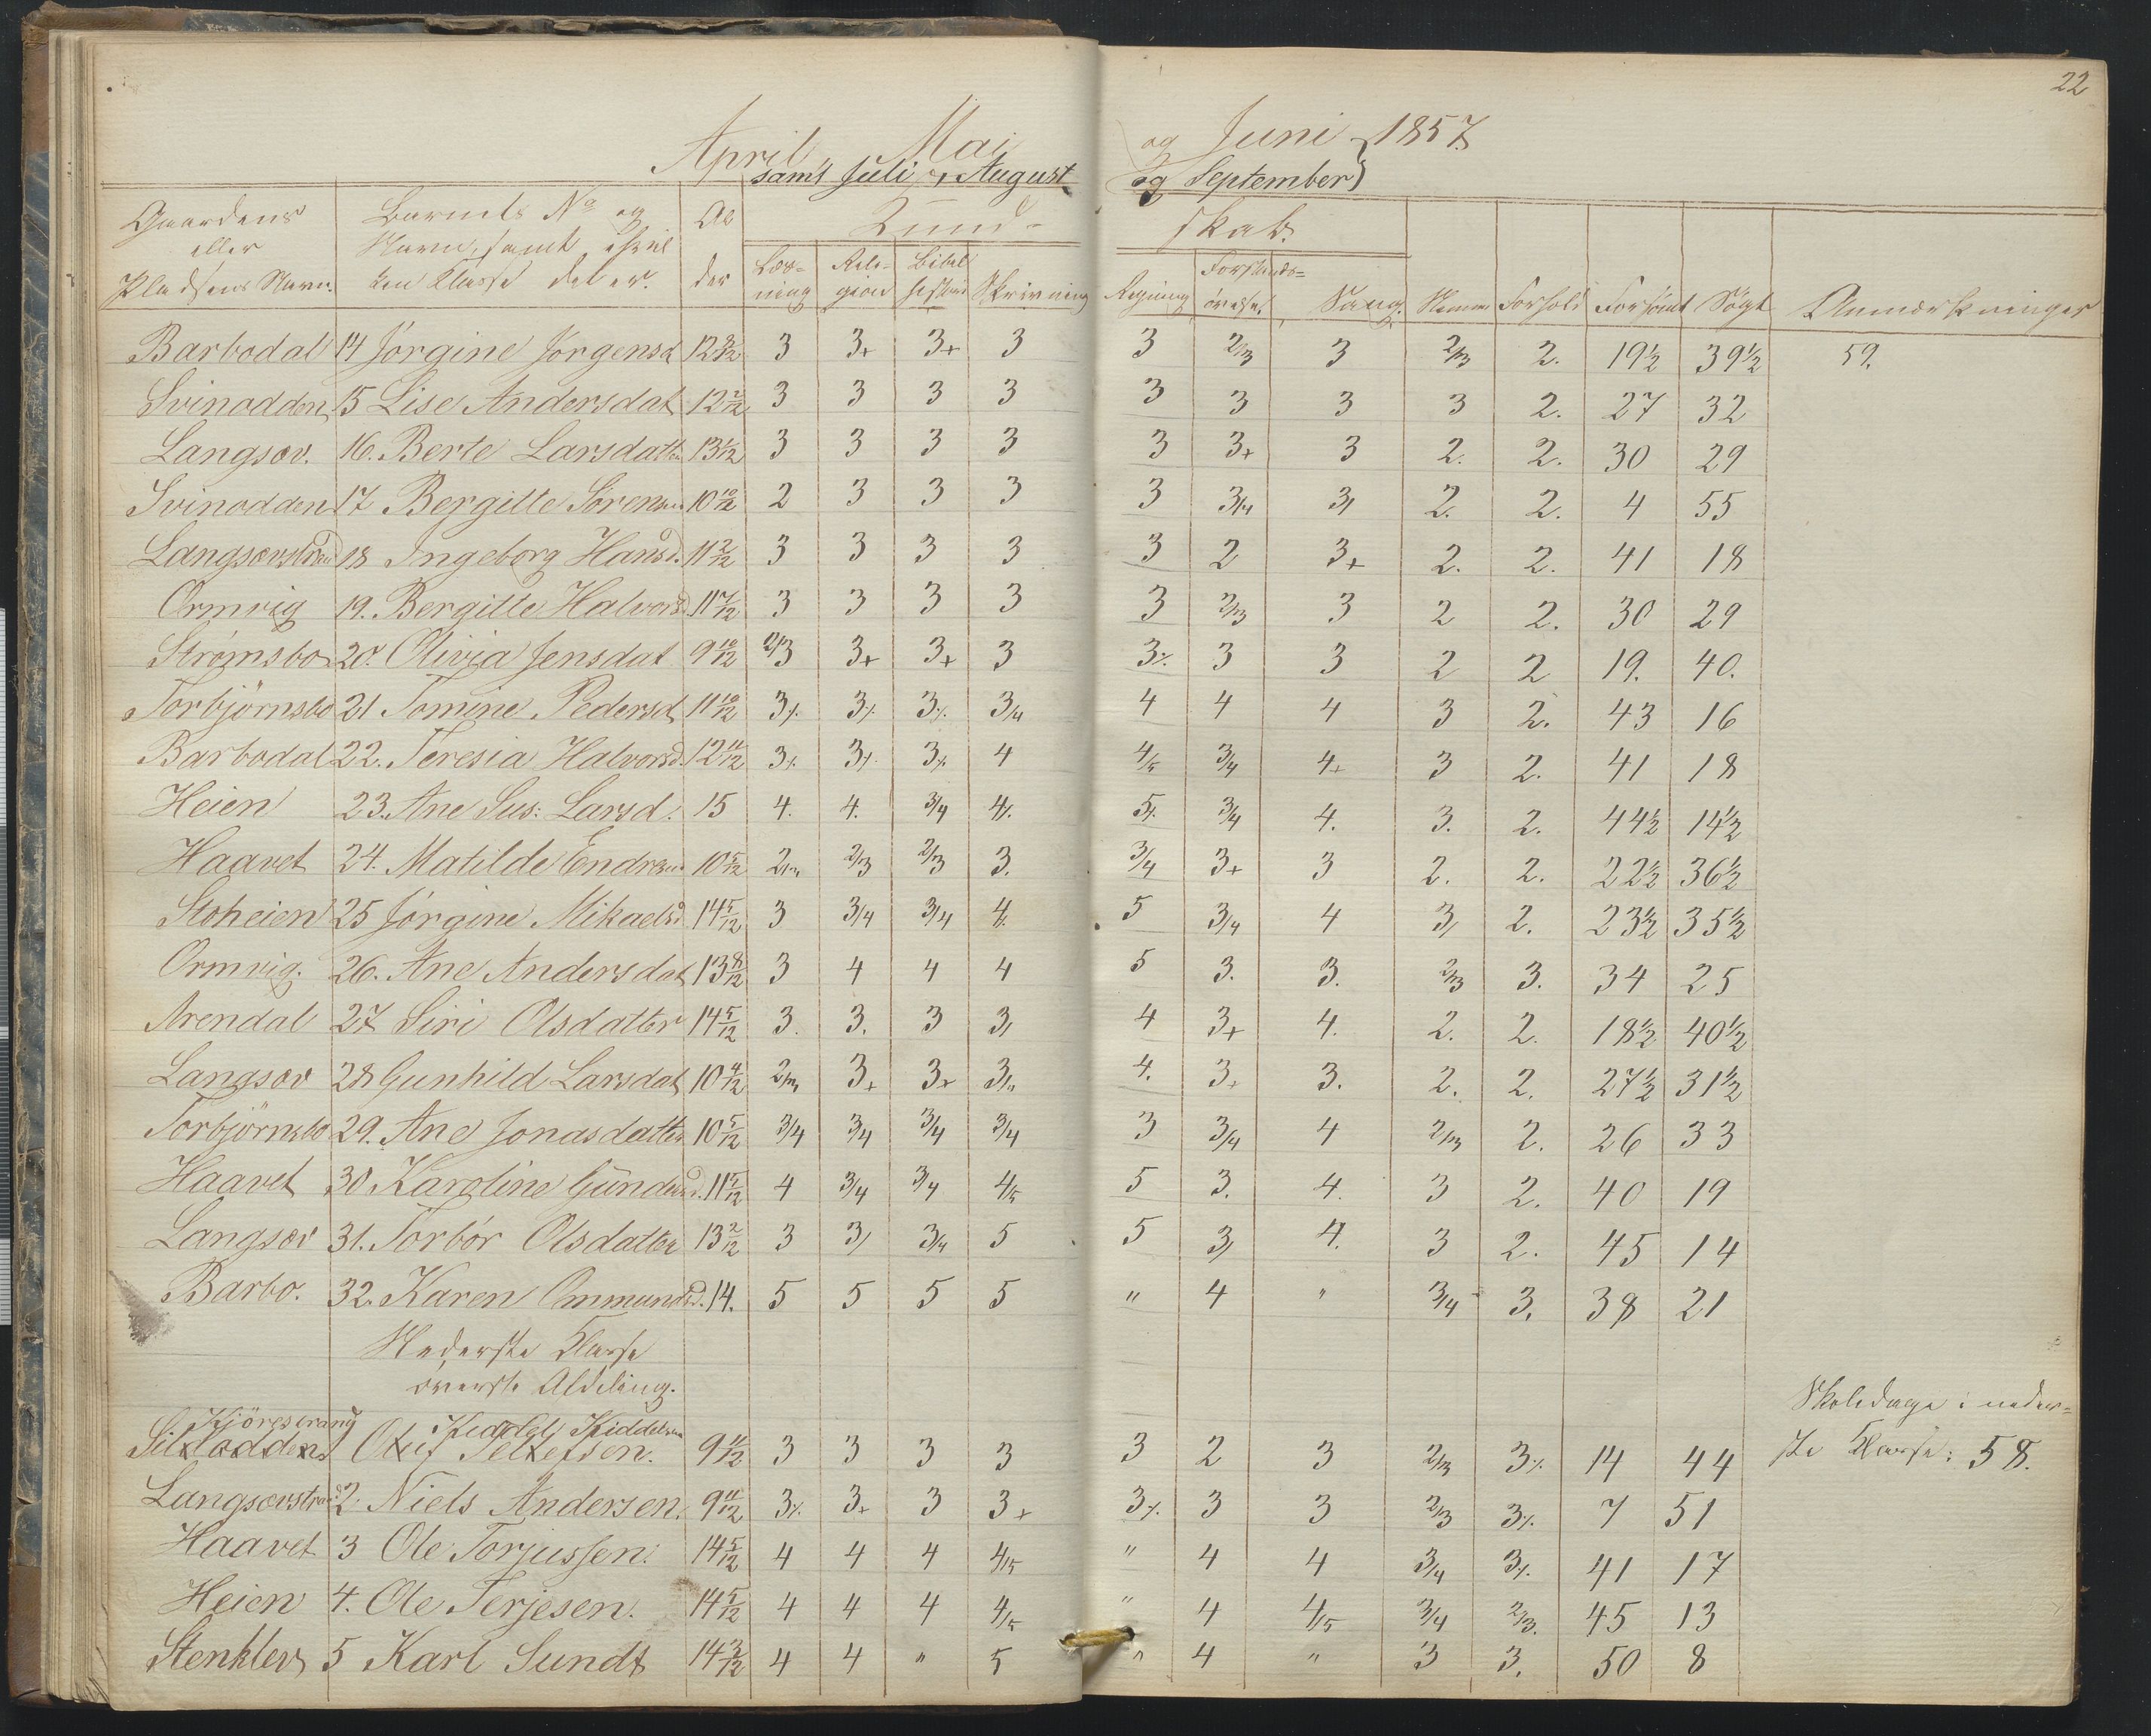 22
April Mai og Juni 1857.
samt Juli, August og September
Gaardens eller Pladsens Navn. | Barnets No og Navn, samt i hvilken Klasse det er. | Alder | Kundskab. | Læsning | Religion | Bibelhistorie | Skrivning | Regning | Forstandsøvelse | Sang. | Nemme | Forhold | Forsömt | Sögt | Anmærkninger
Barbodal 14 Jörgine Jörgensd 12 9/12 3 3+ 3+ 3 3 2/3 3 2/3 2. 19½ 39½ 59.
Svinodden 15 Lise Andersdat 12 2/12 3 3 3 3 3 3 3 3 2. 27 32
Langsæv. 16. Berte Larsdatter 13 1/12 3 3 3 3 3 3+ 3 2. 2. 30 29
Svinodden 17 Bergitte Sörens 10 10/12 2 3 3 3 3 3/4 3/ 2. 2. 4 55
Langsævstrand 18 Ingeborg Hansd. 11 2/12 3 3 3 3 3 2 3+ 2. 2. 41 18
Ormvig 19. Bergitte Halvorsd. 11 7/12 3 3 3 3 3 2/3 3 2 2. 30 29
Strömsbo 20. Olivia Jensdat 9 10/12 2/3 3+ 3+ 3 3% 3 3 2 2 19. 40.
Torbjörnsbo 21 Tomine Pedersd 11 10/12 3% 3% 3% 3/4 4 4 4 3 2. 43 16
Barbodal 22. Teresia Halvorsd. 12 11/12 3% 3% 3% 4 4/5 3/4 4+ 3 2. 41 18
Heien 23. Ane Sus: Larsd. 15 4. 4. 3/4 4% 5% 3/4 4. 3. 2. 44½ 14½
Haavet 24. Matilde Endres 10 5/12 2/3 2/3 2/3 3. 3/4 3+ 3 2. 2. 22½ 36½
Stoheien 25 Jörgine Mikaelsd 14 5/12 3 3/4 3/4 4% 5 3/4 4 3/ 2. 23½ 35½
Ormvig. 26. Ane Andersdat 13 8/12 3 4 4 4 5 3. 3. 2/3 3. 34 25
Arendal 27 Siri Olsdatter 14 5/12 3. 3. 3 3/ 4 3+ 4. 2. 2. 18½ 40½
Langsæv 28 Gunhild Larsdat 10 4/12 2/3 3+ 3+ 3/4 4. 3+ 3. 2. 2. 27½ 31½
Torbjörnsbo 29. Ane Jonasdatter 10 5/12 3/4 3/4 3/4 3/4 3 3/4 4 2/3 2. 26 33
Haavet 30 Karoline Gunders d. 11 5/12 4 3/4 3/4 4/5 5 3. 4. 3 2. 40 19
Langsæv 31. Torbör Olsdatter 13 2/12 3 3/ 3/4 5 5 3/ 4. 3 2. 45 14
Barbo. 32. Karen Ommundsd. 14. 5 5 5 5 " 4 " 3/4 3. 38 21
Nederste Klasse
överste Afdeling.
Skoledage i neder-
Kjörestrang Keddel Kiddelsen
Silkodden 1 Oluf Tellefsen. 9 11/12 3 3 3 3 3 2 3 2/3 3% 14 44 ste Klasse: 58.
Langsævstrand 2 Niels Andersen. 9 11/12 3% 3+ 3 3+ 3% 3 3 2/3 3% 7 51
Haavet 3 Ole Torjussen. 14 5/12 4 4 4 4/5 " 4 4 3/4 3% 41 17
Heien 4. Ole Terjesen. 14 5/12 4 4 4 4/5 " 4 4/5 3/4 2/3. 45 13
Stenklev 5 Karl Sundt 14 3/12 4 4 " 5 " 4 " 3 3. 50 8